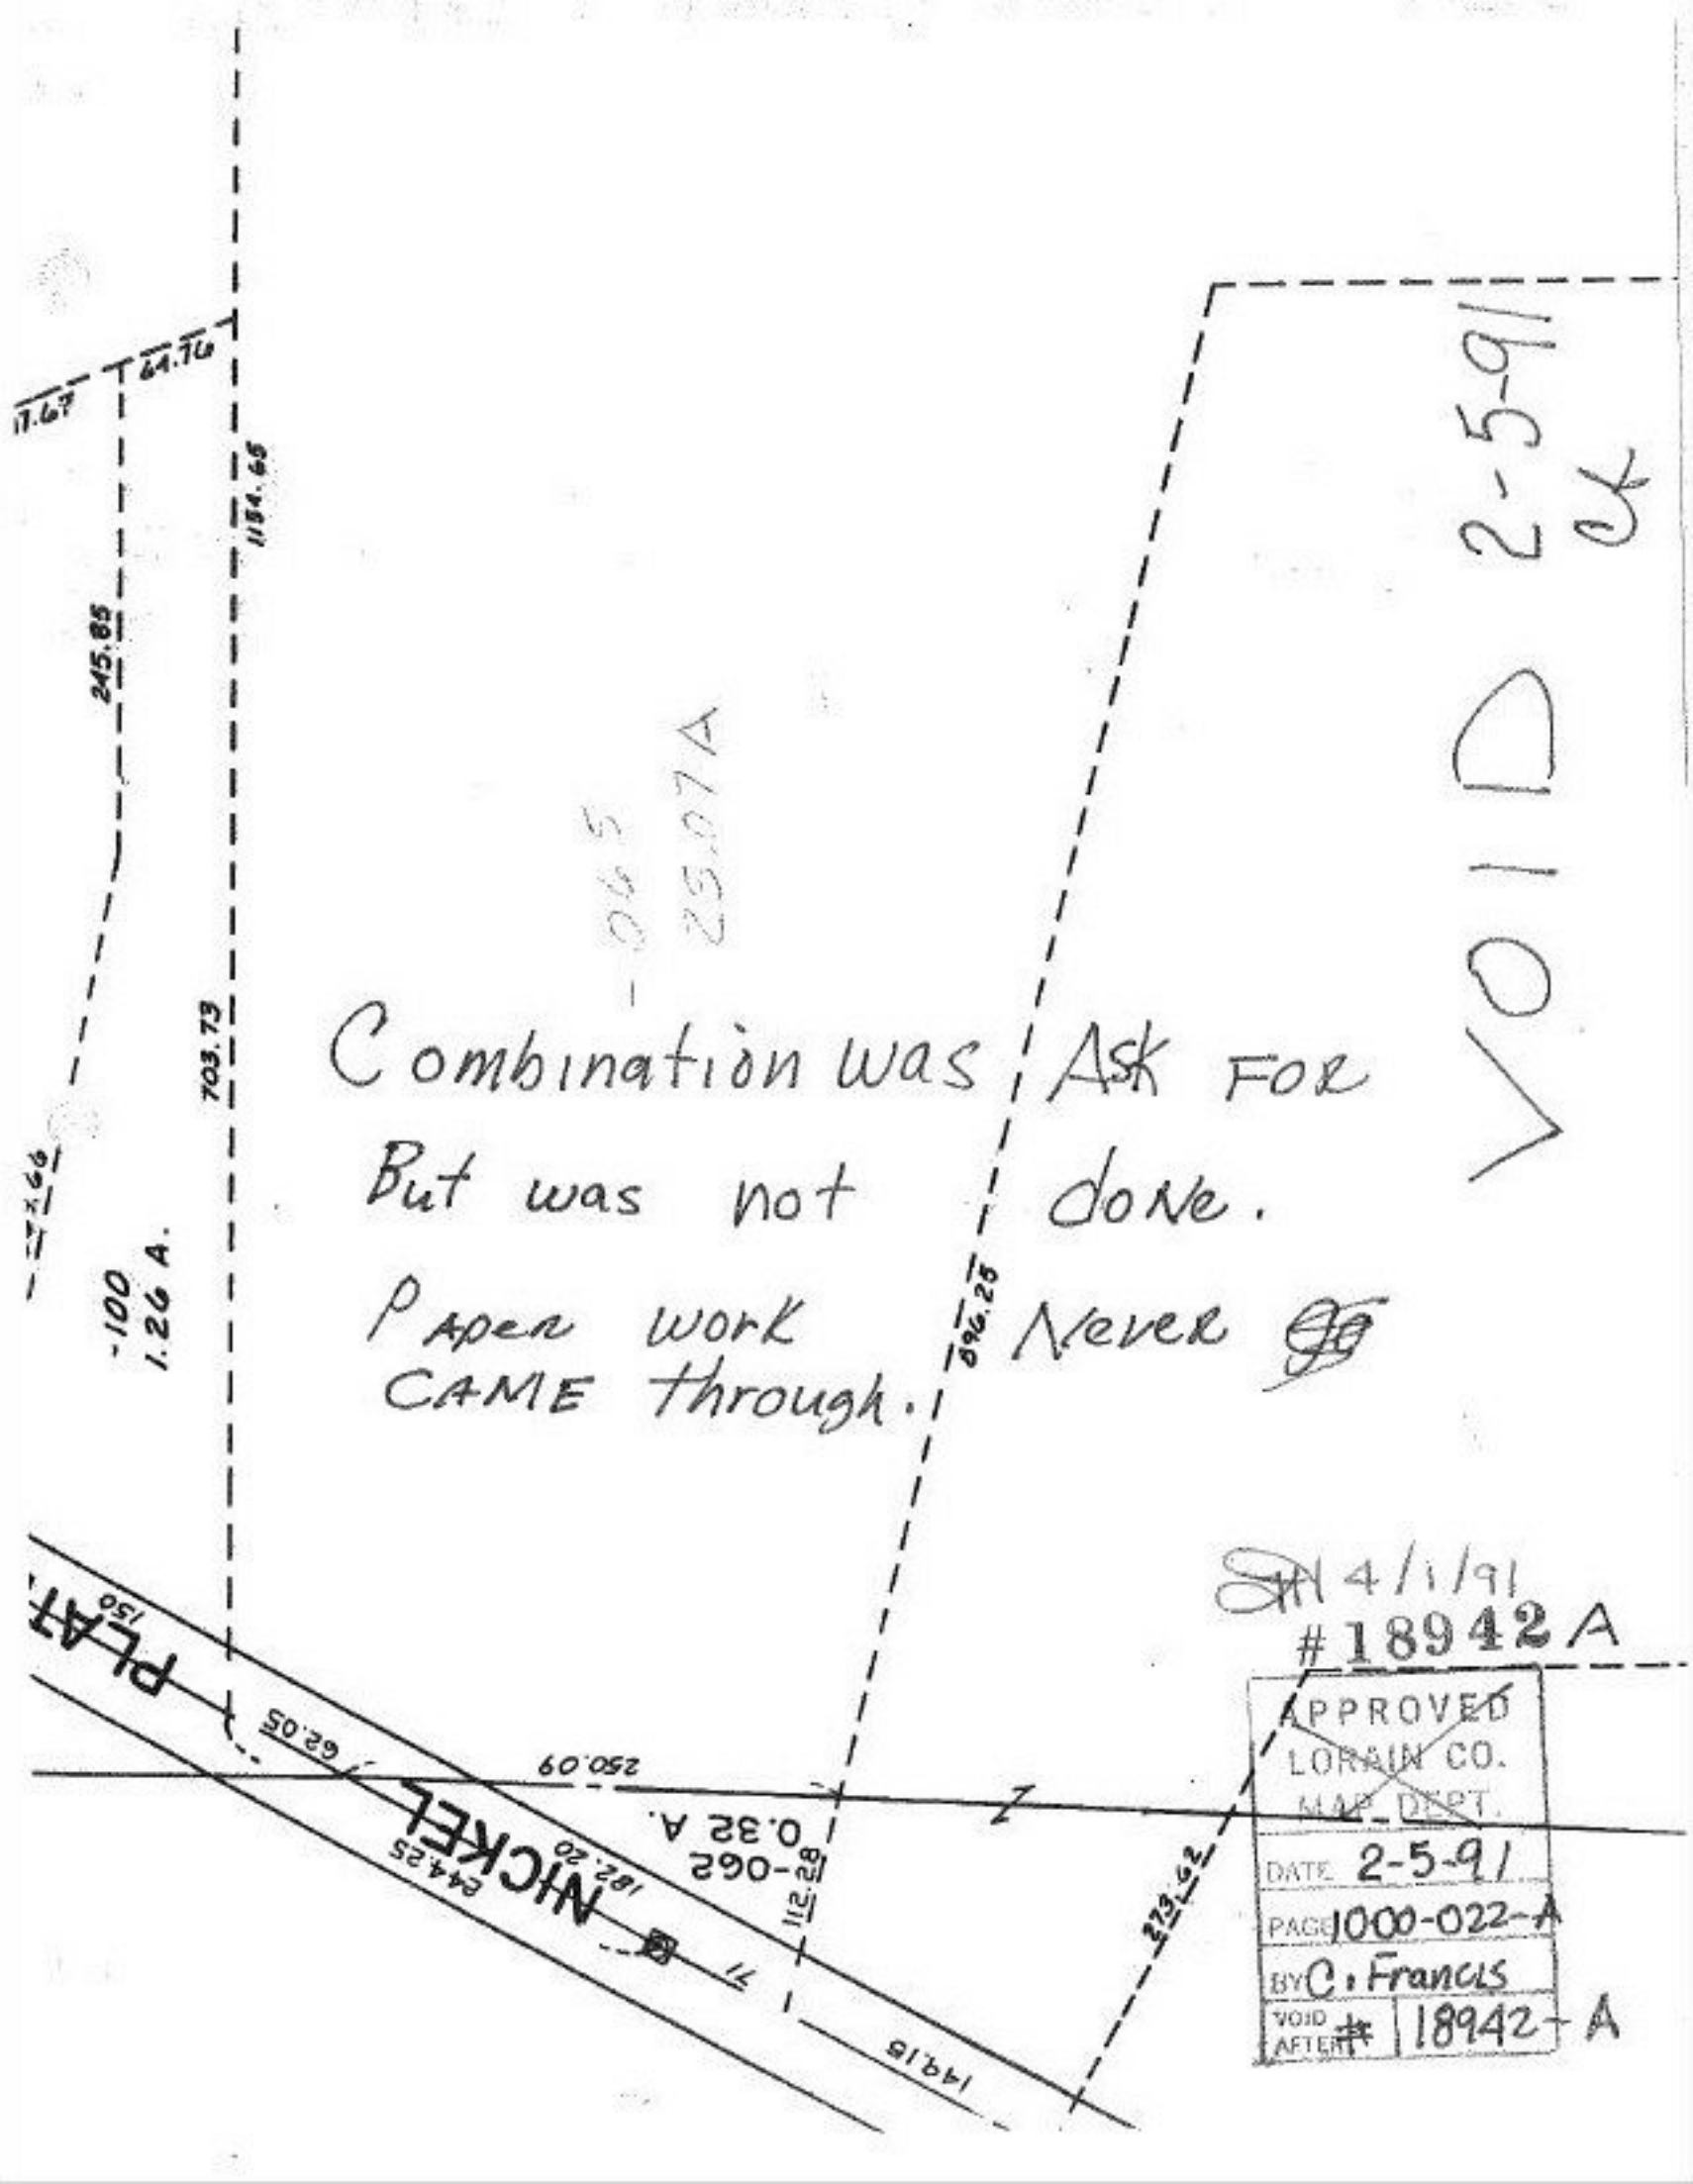 64.76
17.67
1154.65
245.85
2-5-91
CK
VOID
-065
25.07 A
703.73
Combination was Ask FOR
But was not doNe.
PAper work Never
CAME through.
896.25
-100
1.26 A.
4/1/91
#18942 A
APPROVED
LORAIN CO.
MAP DEPT.
DATE 2-5-91
PAGE 1000-022-A
BY C. Francis
VOID AFTER # 18942-A
PLAT
150
62.05
250.09
NICKEL
244.25
182.20
-062
0.32 A.
112.28
273.62
71
149.15